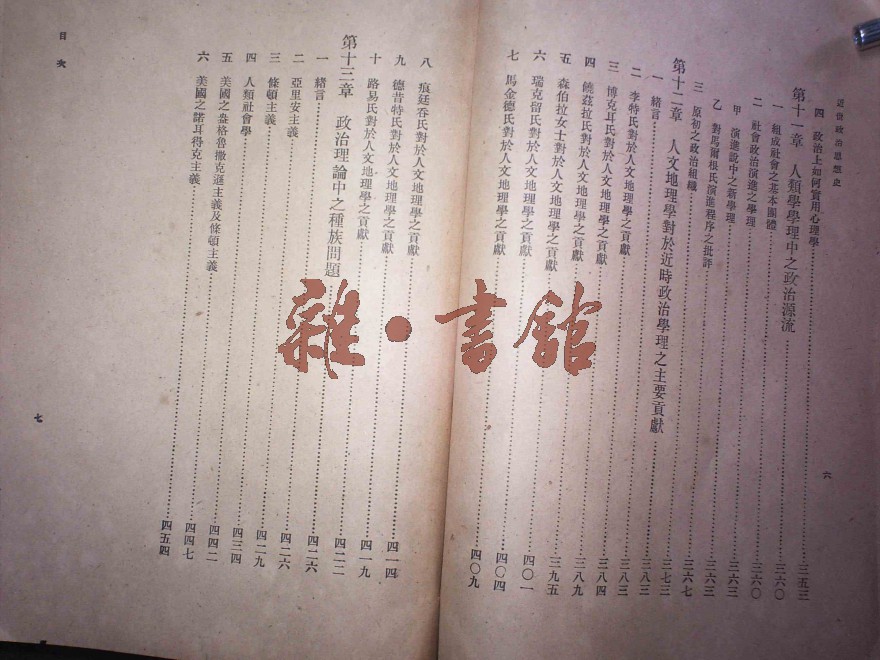 近世政治思想史
四 政治上如何實用心理學……三五三
第十一章 人類學學理中之政治源流……三六〇
一 組成社會之基本團體……三六〇
二 社會政治演進之學理……三六三
甲 演進說中之新學理……三六三
乙 對馬爾根氏演進程序之批評……三六七
三 原初之政治組織……三七三
第十二章 人文地理學對於近時政治學理之主要貢獻……三八三
一 緒言……三八三
二 李特氏對於人文地理學之貢獻……三八四
三 博克耳氏對於人文地理學之貢獻……三八九
四 饒玆拉氏對於人文地理學之貢獻……三九五
五 森伯拉女士對於人文地理學之貢獻……四〇一
六 瑞克留氏對於人文地理學之貢獻……四〇四
七 馬金德氏對於人文地理學之貢獻……四〇九
六
八 痕廷吞氏對於人文地理學之貢獻……四一四
九 德昔特氏對於人文地理學之貢獻……四一九
十 路易氏對於人文地理學之貢獻……四二二
第十三章 政治理論中之種族問題……四二六
一 緒言……四二六
二 亞里安主義……四二九
三 條頓主義……四三四
四 人類社會學……四四二
五 美國之盎格魯撒克遜主義及條頓主義……四四七
六 美國之諾耳得克主義……四五四
目次
七
雜·書館